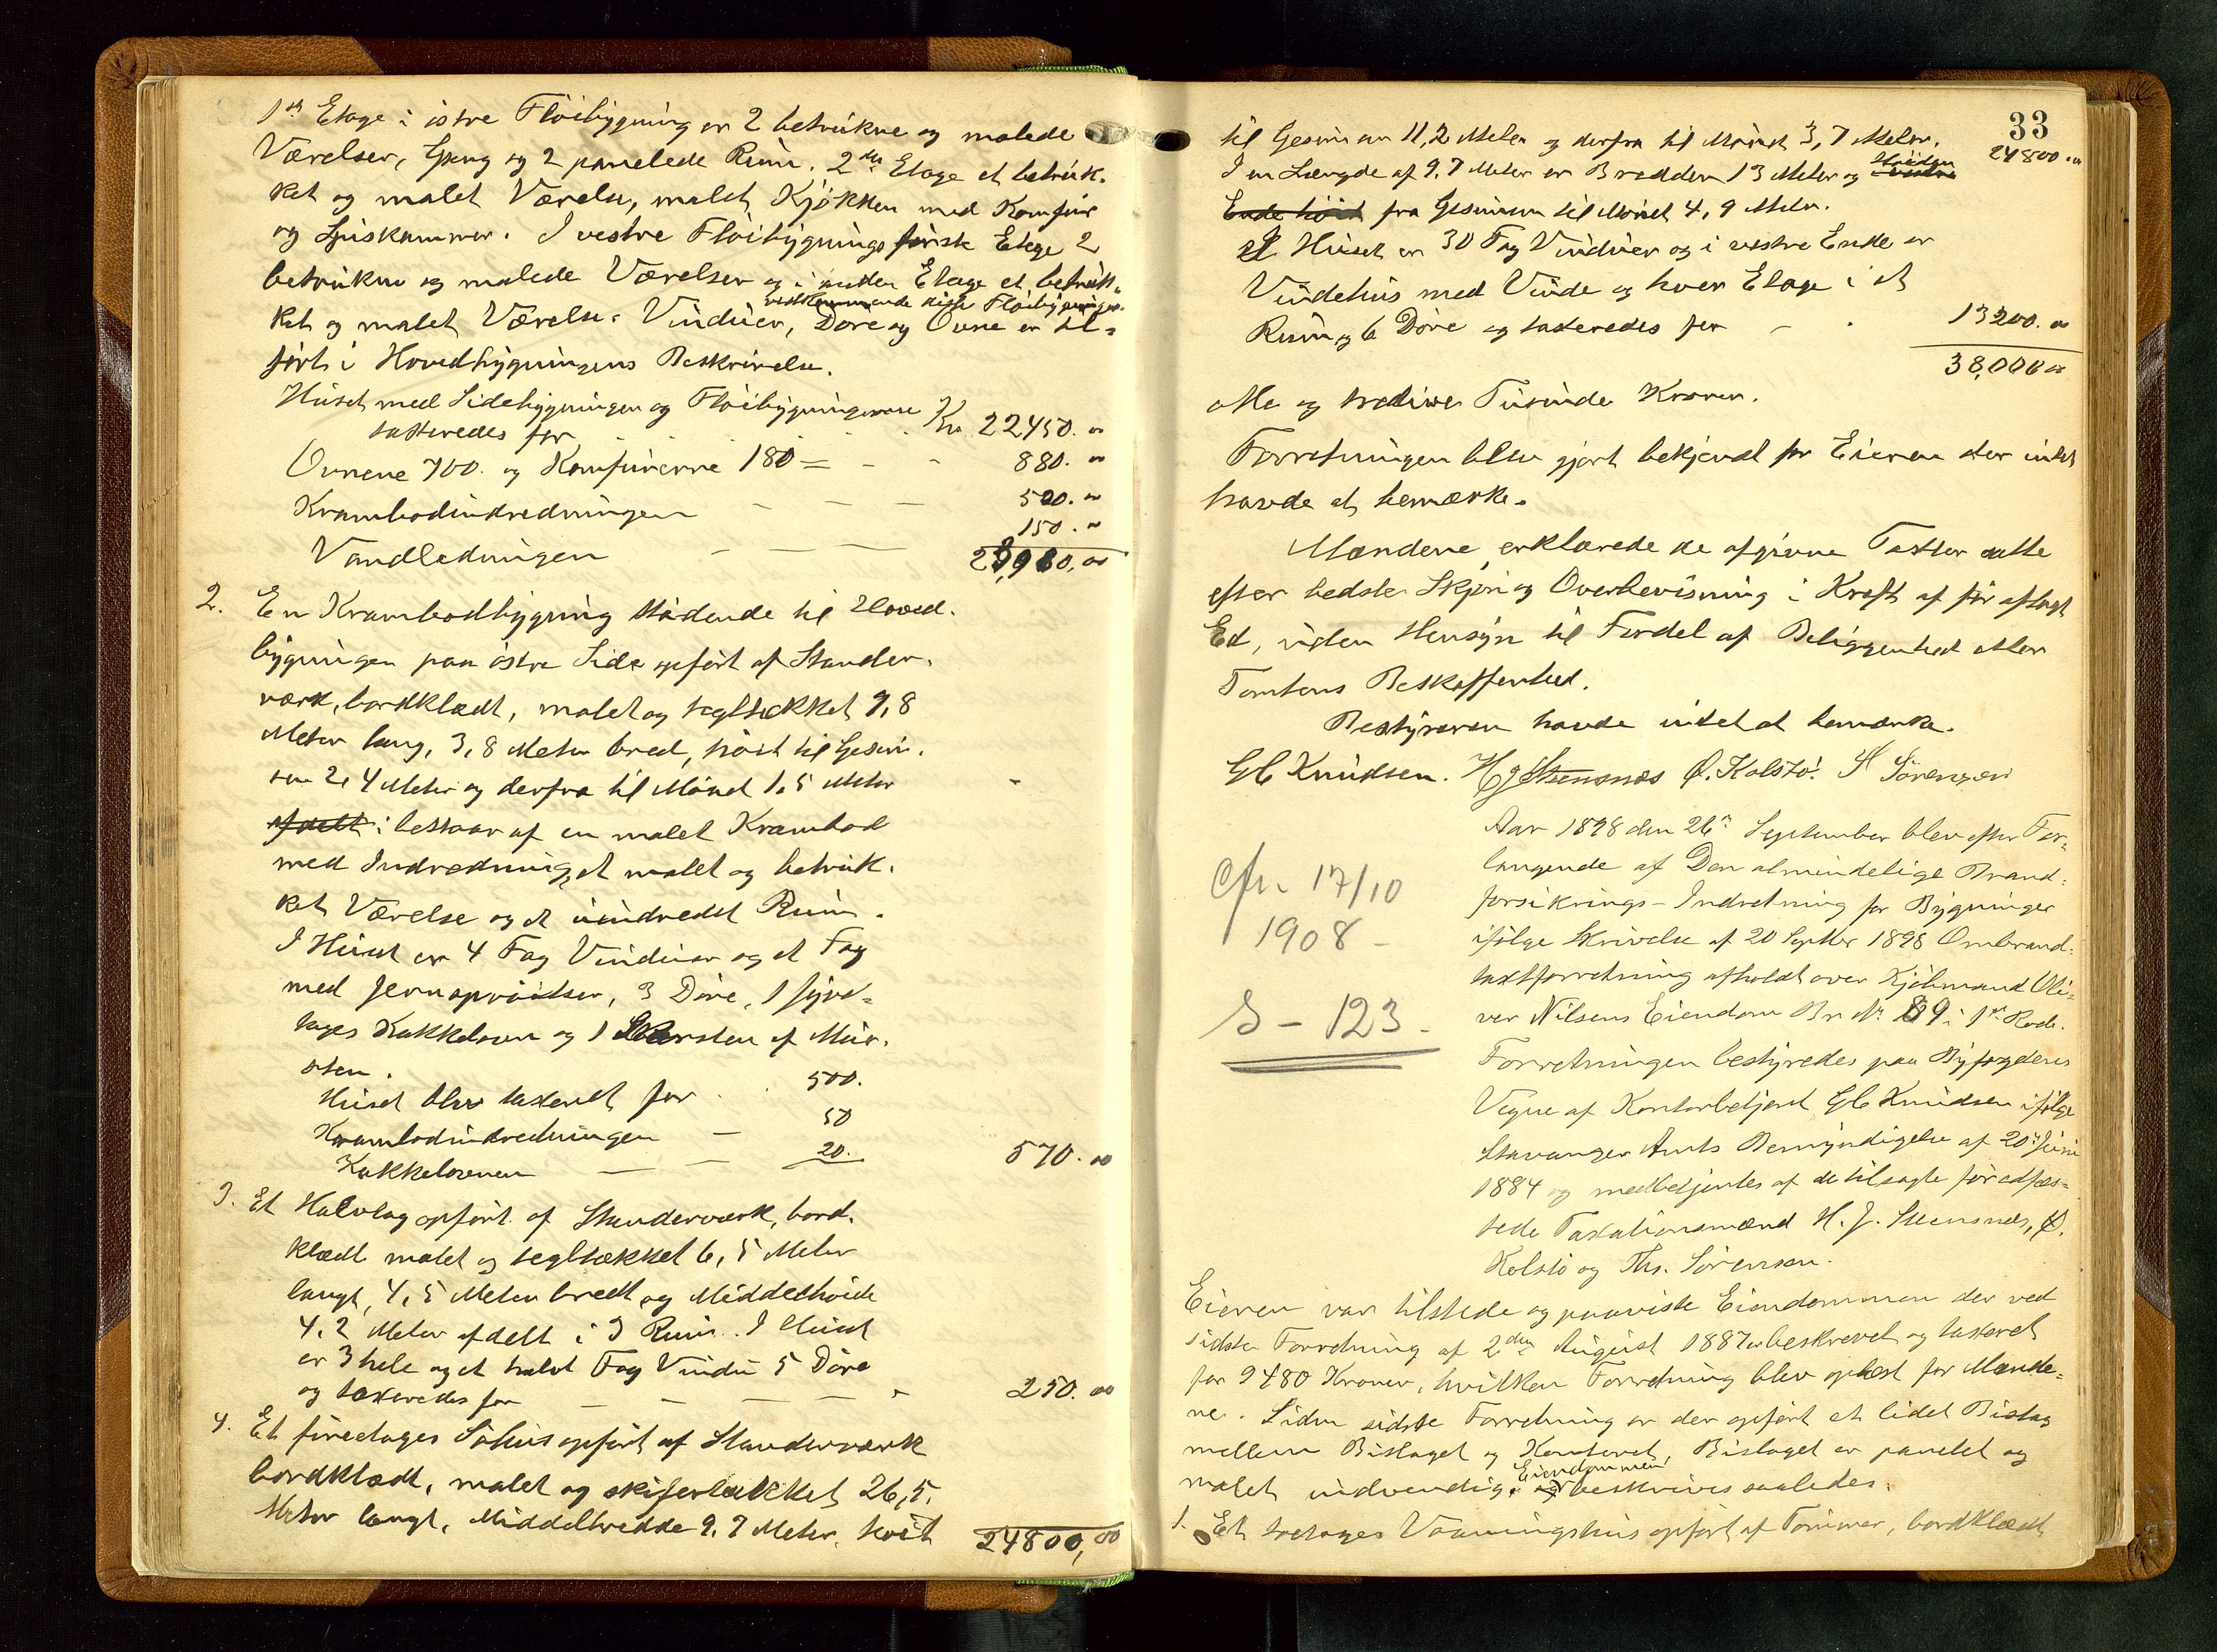 1ste Etage i östre Flöibygning er 2 betrukne og malede
Værelser, Gang og 2 panelede Rum. 2den Etage et betruk-
ket og malet Værelse, malet Kjökken med Komfur
og Spiskammer. I vestre Flöibygnings förste Etage 2
betrukne og malede Værelser og i anden Etage et betruk-
vedkommende disse Flöibygninger
ket og malet Værelse. Vinduer, Döre og Ovne er til-
fört i Hovedbygningens Beskrivelse.
Huset med Sidebygningen og Flöibygningerne
taxeredes for - - - Kr 22450. 00
Ovnene 700. og Komfurerne 180 = - - 880. 00
Krambodindredningen - - - 500. 00
Vandledningen - - - 150. 00
23,980,00
2. En Krambodbygning stödende til Hoved-
bygningen paa östre Side opfört af Stander-
værk, bordklædt, malet og tegltækket 9,8
Meter lang, 3,8 Meter bred, höit til Gesim-
sen 2,4 Meter og derfra til Mönet 1,5 Meter
afdelt i bestaar af en malet Krambod
med Indredning, et malet og betruk-
ket Værelse og et uindredet Rum.
I Huset er 4 Fag Vinduer og et Fag
med Jernsprödser, 3 Döre, 1
tages Kakkelovn og 1 Skorsten af Mur-
sten.
Huset blev taxeret for . 500.
Krambodindredningen - 50
Kakkelovnen - - 20. 570. 00
3. Et Halvtag opfört af Standerværk, bord-
klædt malet og tegltækket 6,5 Meter
langt, 4,5 Meter bredt og Middelhöide
4,2 Meter afdelt i 3 Rum. I Huset
er 3 hele og et halvt Fag Vindu 5 Döre
og taxeredes for - - - - 250. 00
4. Et firetages Söhus opfört af Standerværk
bordklædt, malet og skifertækket 26,5
Meter langt, Middelbredde 9,7 Meter, höit
24800,00
33
til Gesimsen 11,2 Meter og derfra til Mönet 3,7 Meter. 24800.00
I en Længde af 9,7 Meter er Bredden 13 Meter og Höiden
Ende höit fra Gesimsen til Mönet 4,9 Meter.
I Huset er 30 Fag Vinduer og i vestre Ende er
Vindehus med Vinde og hver Etage i et
Rum og 6 Döre og taxeredes for - . 13200. 00
38,000 00
otte og tredive Tusinde Kroner.
Forretningen blev gjort bekjendt for Eieren der intet
havde at bemærke.
Mændene erklærede de afgivne Taxter satte
efter bedste Skjön og Overbevisning i Kraft af för aflagt
Ed, uden Hensyn til Fordel af Beliggenhed eller
Tomtens Beskaffenhed.
Bestyreren havde intet at bemærke.
Gb Knudsen. H J Steensnæs Ö. Kolstö. Th Sörensen
Aar 1898 den 26de September blev efter For-
langende af Den almindelige Brand-
forsikrings-Indretning for Bygninger
ifölge Skrivelse af 20 Septbr 1898 Ombrand-
taxtforretning afholdt over Kjöbmand Oli-
ver Nilsens Eiendom Br. No 89 i 1ste Rode.
Forretningen bestyredes paa Byfogdens
Vegne af Kontorbetjent Gb Knudsen ifölge
Stavanger Amts Bemyndigelse af 20de Juni
1884 og medbetjentes af de tilsagte för edfæs-
tede Taxationsmænd H. J. Steensnæs, Ö.
Kolstö og Ths. Sörensen.
Cfr. 17/10
1908 -
S - 123.
Eieren var tilstede og paaviste Eiendommen der ved
sidste Forretning af 2den August 1887 er beskrevet og taxeret
for 9480 Kroner, hvilken Forretning blev oplæst for Mænde-
ne. Siden sidste Forretning er der opfört et lidet Bislag
mellem Bislaget og Kontoret, Bislaget er panelet og
Eiendommen
malet indvendig. beskrives saaledes:
1. Et toetages Vaaningshus opfört af Tömmer, bordklædt